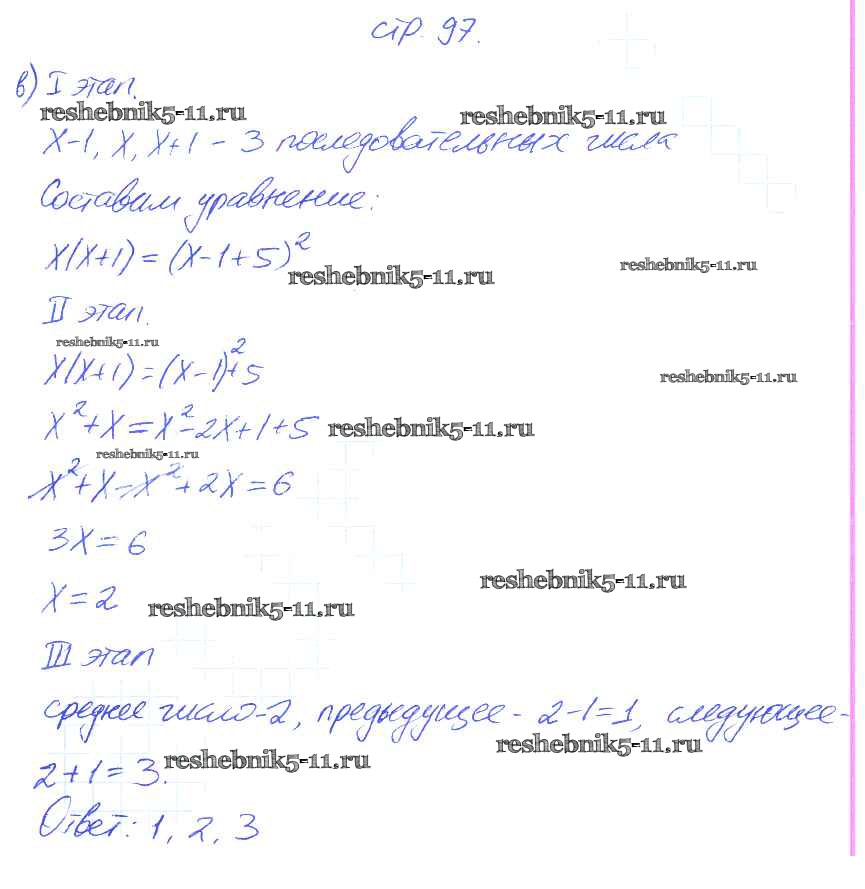 стр. 97.
в) I этап.
reshebnik5-11.ru
reshebnik5-11.ru
x-1, x, x+1 - 3 последовательных числа
Составим уравнение:
x(x+1) = (x-1+5)²
reshebnik5-11.ru
reshebnik5-11.ru
II этап.
reshebnik5-11.ru
x(x+1) = (x-1)²+5
reshebnik5-11.ru
x²+x = x²-2x+1+5
reshebnik5-11.ru
reshebnik5-11.ru
x²+x-x²+2x=6
3x=6
reshebnik5-11.ru
x=2
reshebnik5-11.ru
III этап
среднее число-2, предыдущее - 2-1=1, следующее-
reshebnik5-11.ru
2+1=3.
reshebnik5-11.ru
Ответ: 1, 2, 3